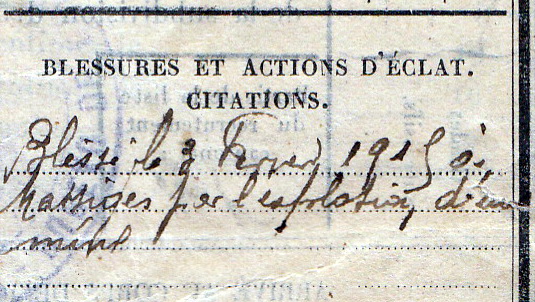 BLESSURES ET ACTIONS D'ÉCLAT.
CITATIONS.
Blessé le 3 Fevrier 1915 à
Massiges par l'explosion d'une
mine